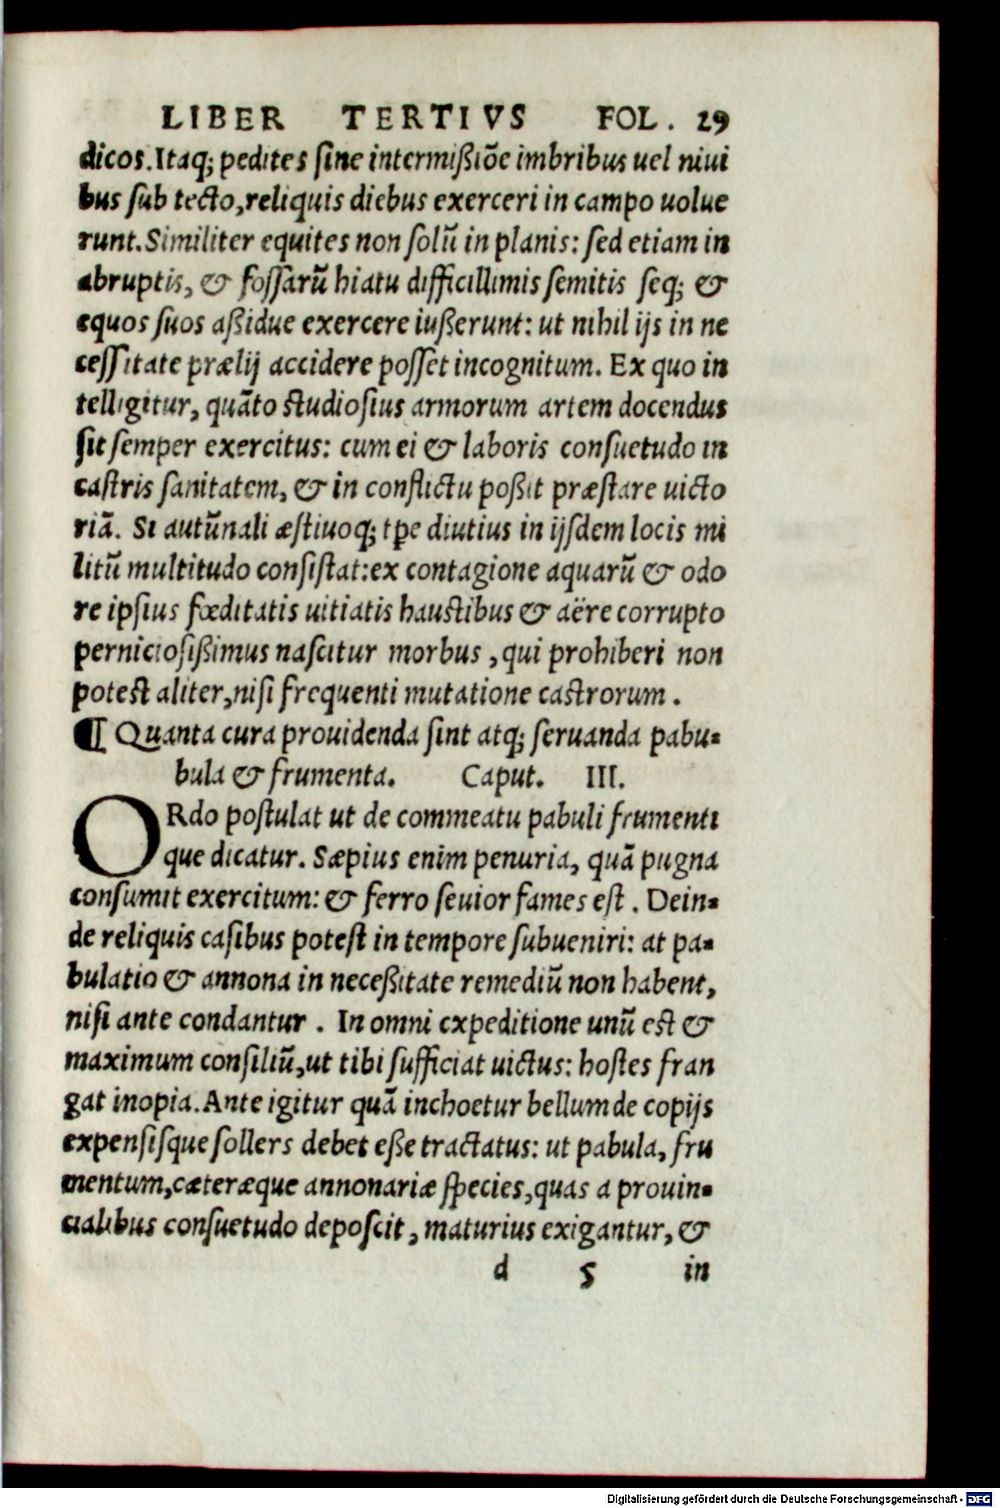 LIBER TERTIVS FOL. 29
dicos. Itaq; pedites ſine intermißiōe imbribus uel niui
bus ſub tecto, reliquis diebus exerceri in campo uolue
runt. Similiter equites non ſolū in planis: ſed etiam in
abruptis, & foſſarū hiatu difficillimis ſemitis ſeq; &
equos ſuos aßidue exercere iußerunt: ut nihil ijs in ne
ceſſitate prælij accidere poſſet incognitum. Ex quo in
telligitur, quāto ſtudioſius armorum artem docendus
ſit ſemper exercitus: cum ei & laboris conſuetudo in
caſtris ſanitatem, & in conflictu poßit præſtare uicto
riā. Si autūnali æſtiuoq; tp̄e diutius in ijſdem locis mi
litū multitudo conſiſtat: ex contagione aquarū & odo
re ipſius fœditatis uitiatis hauſtibus & aëre corrupto
pernicioſißimus naſcitur morbus, qui prohiberi non
poteſt aliter, niſi frequenti mutatione caſtrorum.
¶ Quanta cura prouidenda ſint atq; ſeruanda pabu-
bula & frumenta. Caput. III.
ORdo poſtulat ut de commeatu pabuli frumenti
que dicatur. Sæpius enim penuria, quā pugna
conſumit exercitum: & ferro ſeuior fames eſt. Dein-
de reliquis caſibus poteſt in tempore ſubueniri: at pa-
bulatio & annona in neceßitate remediū non habent,
niſi ante condantur. In omni expeditione unū eſt &
maximum conſiliū, ut tibi ſufficiat uictus: hoſtes fran
gat inopia. Ante igitur quā inchoetur bellum de copijs
expenſiſque ſollers debet eße tractatus: ut pabula, fru
mentum, cæteræque annonariæ ſpecies, quas a prouin-
cialibus conſuetudo depoſcit, maturius exigantur, &
d 5 in
Digitalisierung gefördert durch die Deutsche Forschungsgemeinschaft - DFG